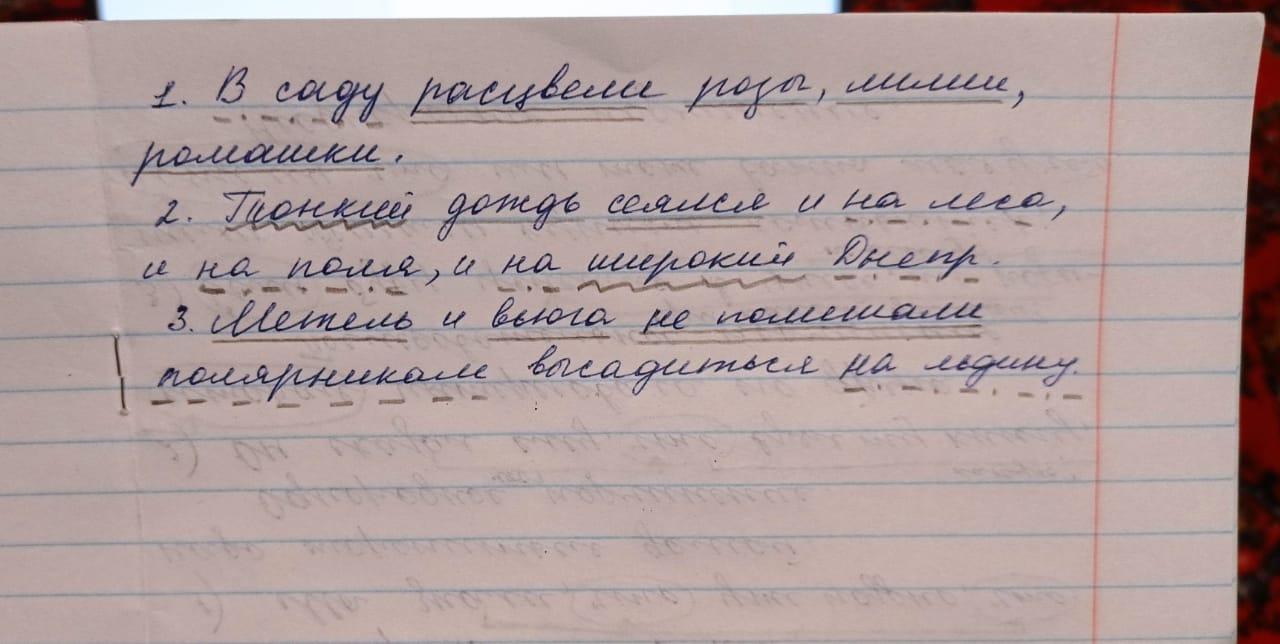 1. В саду расцвели розы, лилии,
ромашки.
2. Тонкий дождь сеялся и на леса,
и на поля, и на широкий Днепр.
3. Метель и вьюга не помешали
полярникам высадиться на льдину.